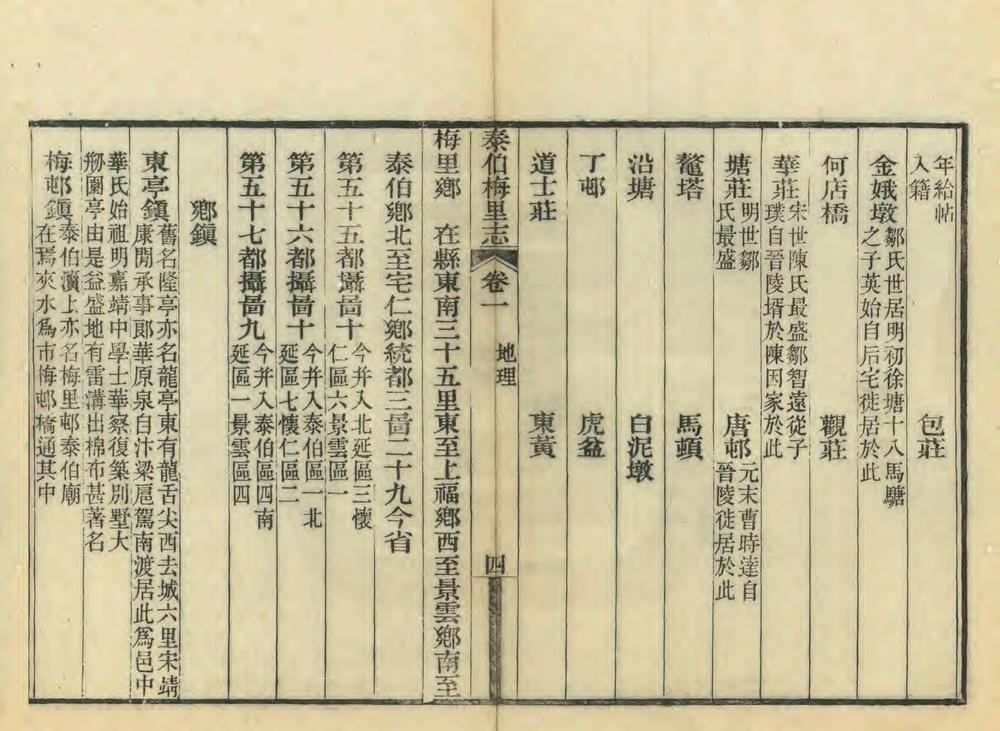 年給帖
入籍
包莊
金娥墩
鄒氏世居明初徐塘十八馬驣
之子英始自后宅徙居於此
何店橋
觀莊
華莊
宋世陳氏最盛鄒智遠從子
璞自晉陵壻於陳因家於此
塘莊
明世鄒
氏最盛
唐邨
元末曹時達自
晉陵徙居於此
鼇塔
馬頓
沿塘
白泥墩
丁邨
虎盆
道士莊
東黃
泰伯梅里志 卷一 地理 四
梅里鄉 在縣東南三十五里東至上福鄉西至景雲鄉南至
泰伯鄉北至宅仁鄉統都三啚二十九今省
第五十五都攝啚十
今并入北延區三懷
仁區六景雲區一
第五十六都攝啚十
今并入泰伯區一北
延區七懷仁區二
第五十七都攝啚九
今并入泰伯區四南
延區一景雲區四
鄉鎮
東亭鎮
舊名隆亭亦名龍亭東有龍舌尖西去城六里宋靖
康閒承事郞華原泉自汴梁扈駕南渡居此爲邑中
華氏始祖明嘉靖中學士華察復築別墅大
刱園亭由是益盛地有雷溝出棉布甚著名
梅邨鎮
泰伯瀆上亦名梅里邨泰伯廟
在焉夾水爲市梅邨橋通其中